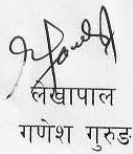 लेखापाल
गणेश गुरुङ